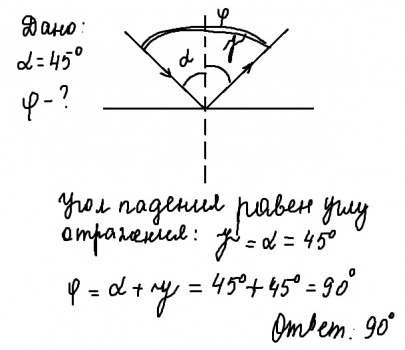 Дано:
α = 45°
φ - ?
φ
γ
α
Угол падения равен углу
отражения: γ = α = 45°
φ = α + γ = 45° + 45° = 90°
Ответ: 90°